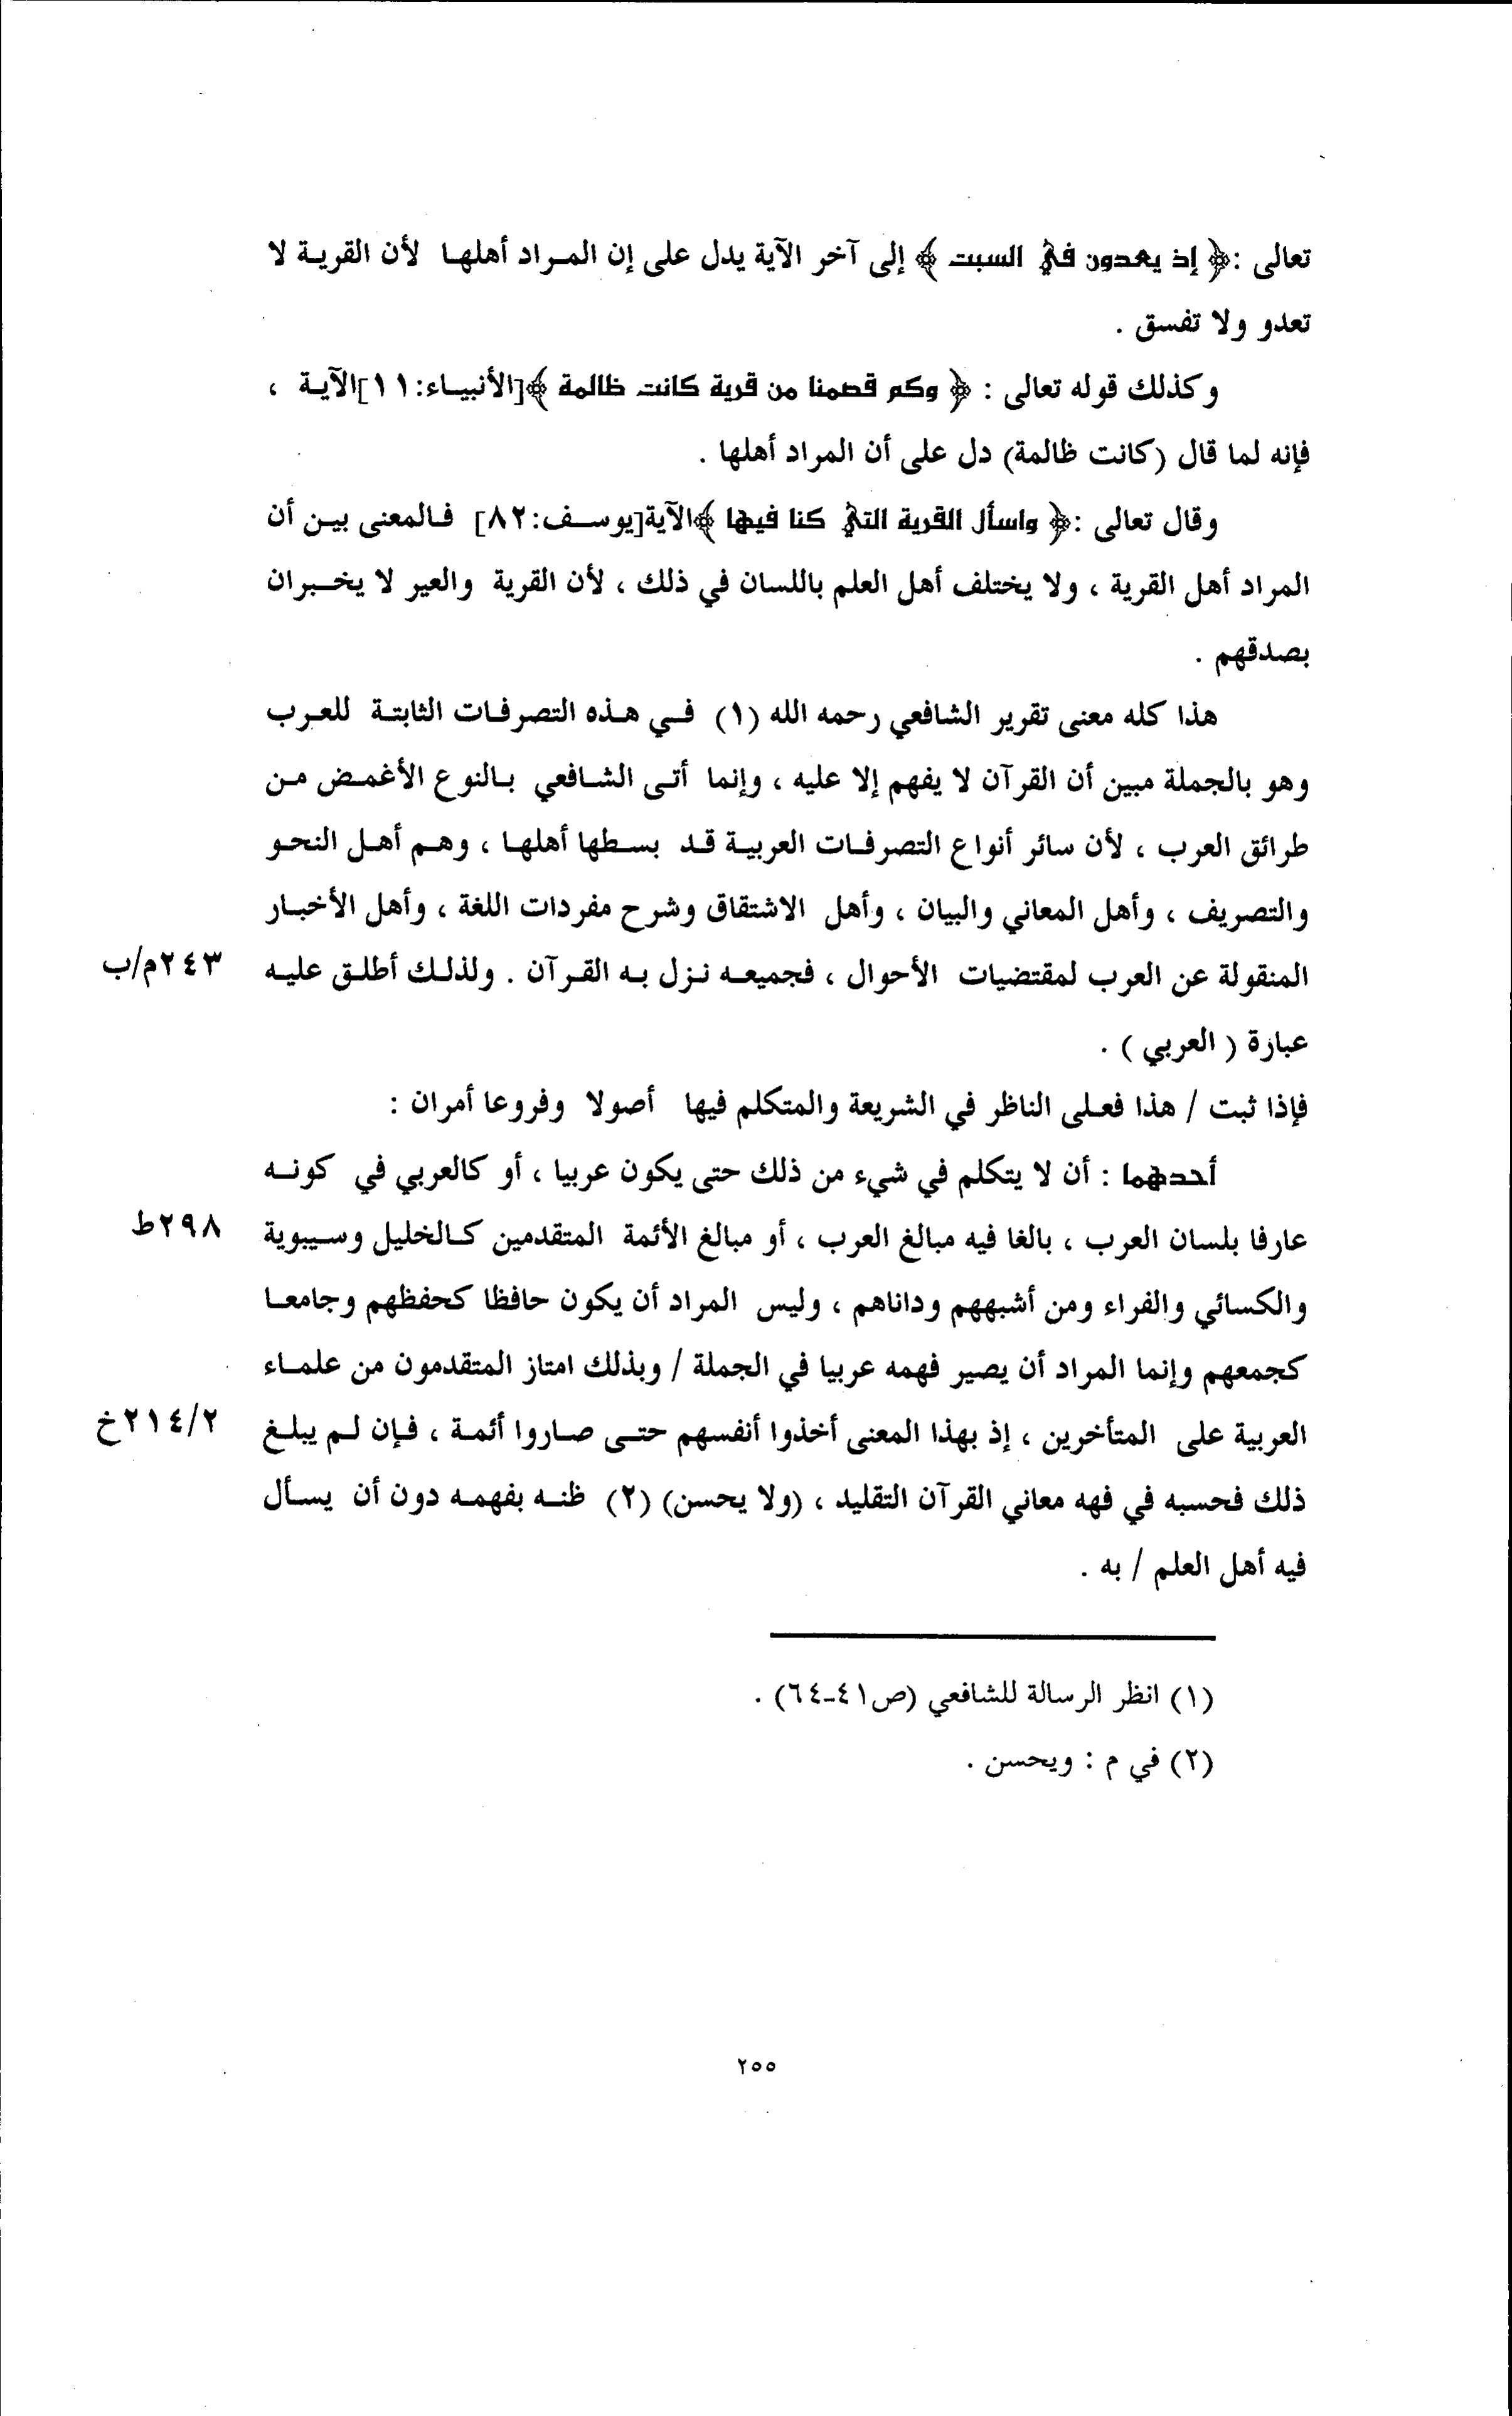 تعالى :﴿ إذ يعدون في السبت ﴾ إلى آخر الآية يدل على إن المراد أهلها لأن القرية لا
تعدو ولا تفسق .
وكذلك قوله تعالى : ﴿ وكم قصمنا من قرية كانت ظالمة ﴾[الأنبياء:١١]الآية ،
فإنه لما قال (كانت ظالمة) دل على أن المراد أهلها .
وقال تعالى :﴿ واسأل القرية التي كنا فيها ﴾الآية[يوسف:٨٢] فالمعنى بين أن
المراد أهل القرية ، ولا يختلف أهل العلم باللسان في ذلك ، لأن القرية والعير لا يخبران
بصدقهم .
هذا كله معنى تقرير الشافعي رحمه الله (١) في هذه التصرفات الثابتة للعرب
وهو بالجملة مبين أن القرآن لا يفهم إلا عليه ، وإنما أتى الشافعي بالنوع الأغمض من
طرائق العرب ، لأن سائر أنواع التصرفات العربية قد بسطها أهلها ، وهم أهل النحو
والتصريف ، وأهل المعاني والبيان ، وأهل الاشتقاق وشرح مفردات اللغة ، وأهل الأخبار
المنقولة عن العرب لمقتضيات الأحوال ، فجميعه نزل به القرآن . ولذلك أطلق عليه ٢٤٣م/ب
عبارة ( العربي ) .
فإذا ثبت / هذا فعلى الناظر في الشريعة والمتكلم فيها أصولا وفروعا أمران :
أحدهما : أن لا يتكلم في شيء من ذلك حتى يكون عربيا ، أو كالعربي في كونه
عارفا بلسان العرب ، بالغا فيه مبالغ العرب ، أو مبالغ الأئمة المتقدمين كالخليل وسيبوية ٢٩٨ط
والكسائي والفراء ومن أشبههم وداناهم ، وليس المراد أن يكون حافظا كحفظهم وجامعا
كجمعهم وإنما المراد أن يصير فهمه عربيا في الجملة / وبذلك امتاز المتقدمون من علماء
العربية على المتأخرين ، إذ بهذا المعنى أخذوا أنفسهم حتى صاروا أئمة ، فإن لم يبلغ ٢/٢١٤خ
ذلك فحسبه في فهه معاني القرآن التقليد ، (ولا يحسن) (٢) ظنه بفهمه دون أن يسأل
فيه أهل العلم / به .
(١) انظر الرسالة للشافعي (ص٤١-٦٤) .
(٢) في م : ويحسن .
٢٥٥